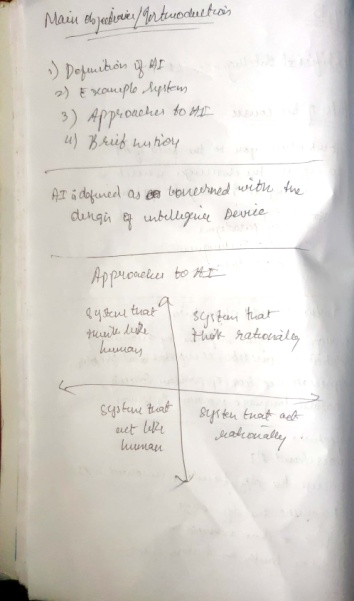 Main objectives/Introduction
1) Definition of AI
2) Example System
3) Approaches to AI
4) Brief history
AI is defined as concerned with the
design of intelligence Device
Approaches to AI
System that
think like
human
System that
think rationally
System that
act like
human
System that act
rationally